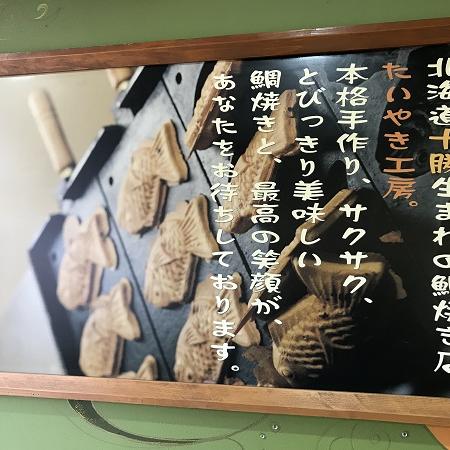 北海道十勝生まれの鯛焼き店
たいやき工房。
本格手作り、サクサク、
とびっきり美味しい
鯛焼きと、最高の笑顔が、
あなたをお待ちしております。